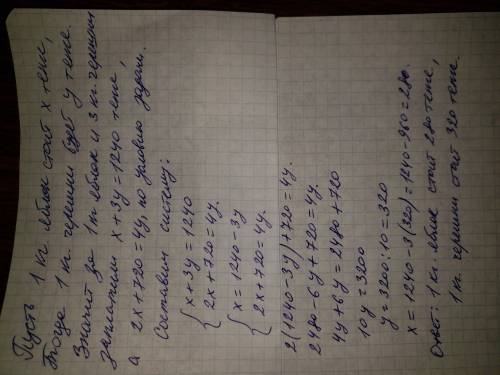 Пусть 1 кг. яблок стоит x тенге,
Тогда 1 кг. черешни будет y тенге.
Значит за 1 кг яблок и 3 кг. черешни
заплатили x + 3y = 1240 тенге,
а 2x + 720 = 4y, по условию задачи.
Составим систему:
{ x + 3y = 1240
2x + 720 = 4y.
{ x = 1240 - 3y
2x + 720 = 4y.
2(1240 - 3y) + 720 = 4y.
2480 - 6y + 720 = 4y.
4y + 6y = 2480 + 720
10y = 3200
y = 3200 : 10 = 320
x = 1240 - 3(320) = 1240 - 960 = 280.
Ответ: 1 кг. яблок стоит 280 тенге,
1 кг. черешни стоит 320 тенге.